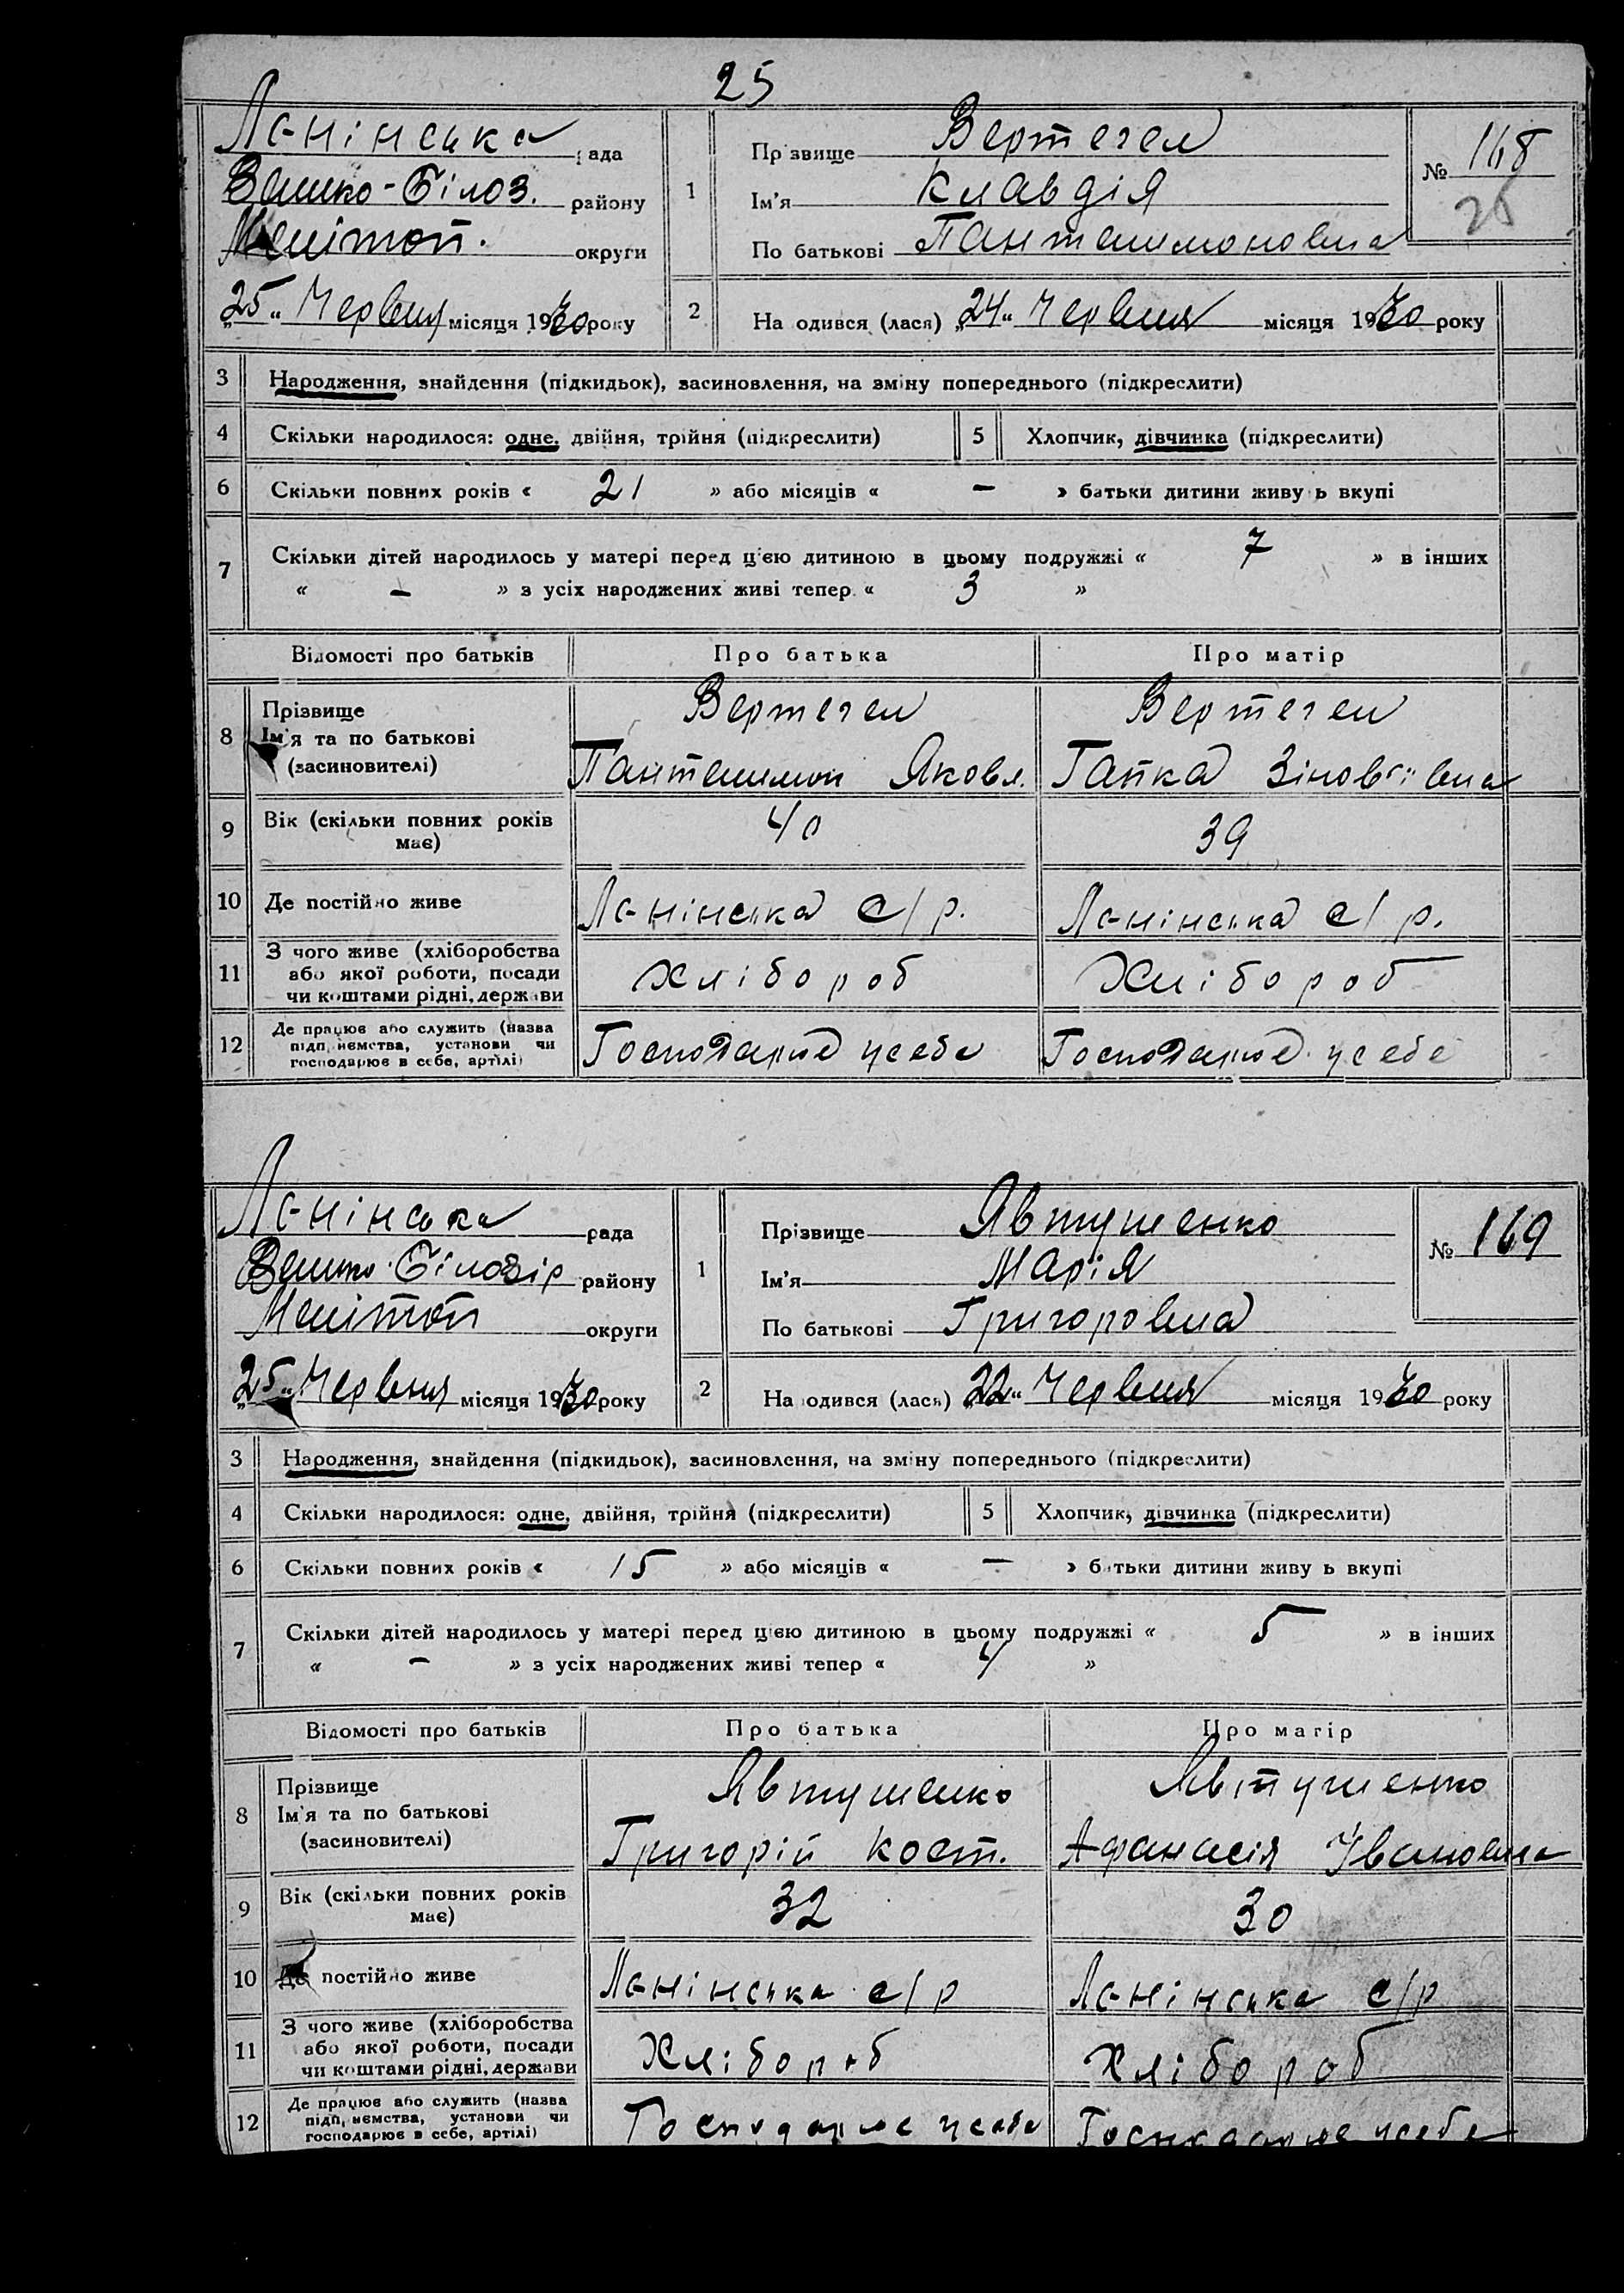 25
Ленінська рада
Велико-Білоз. району
Мелітоп. округи
„25“ Червня місяця 1930 року
1
Прізвище Вертегел
Ім'я Клавдія
По батькові Пантелимоновна
№ 168
25
2
Народився (лася) „24“ Червня місяця 1930 року
3 Народження, знайдення (підкидьок), засиновлення, на зміну попереднього (підкреслити)
4 Скільки народилося: одне, двійня, трійня (підкреслити) 5 Хлопчик, дівчинка (підкреслити)
6 Скільки повних років « 21 » або місяців « — » батьки дитини живуть вкупі
7 Скільки дітей народилось у матері перед цією дитиною в цьому подружжі « 7 » в інших
« — » з усіх народжених живі тепер « 3 »
Відомості про батьків Про батька Про матір
8 Прізвище
Ім'я та по батькові
(засиновителі)
Вертегел
Пантелимон Яковл.
Вертегел
Гапка Зінов'ївна
9 Вік (скільки повних років
має)
40
39
10 Де постійно живе Ленінська с/р. Ленінська с/р.
11 З чого живе (хліборобства
або якої роботи, посади
чи коштами рідні, держави
Хлібороб
Хлібороб
12 Де працює або служить (назва
підприємства, установи чи
господарює в себе, артілі)
Господарює усебе
Господарює усебе
Ленінська рада
Велико-Білозір району
Мелітоп округи
„25“ Червня місяця 1930 року
1
Прізвище Явтушенко
Ім'я Марія
По батькові Григоровна
№ 169
2
Народився (лася) „22“ Червня місяця 1930 року
3 Народження, знайдення (підкидьок), засиновлення, на зміну попереднього (підкреслити)
4 Скільки народилося: одне, двійня, трійня (підкреслити) 5 Хлопчик, дівчинка (підкреслити)
6 Скільки повних років « 15 » або місяців « — » батьки дитини живуть вкупі
7 Скільки дітей народилось у матері перед цією дитиною в цьому подружжі « 5 » в інших
« — » з усіх народжених живі тепер « 4 »
Відомості про батьків Про батька Про матір
8 Прізвище
Ім'я та по батькові
(засиновителі)
Явтушенко
Григорій Кост.
Явтушенко
Афанасія Івановна
9 Вік (скільки повних років
має)
32
30
10 Де постійно живе Ленінська с/р Ленінська с/р
11 З чого живе (хліборобства
або якої роботи, посади
чи коштами рідні, держави
Хлібороб
Хлібороб
12 Де працює або служить (назва
підприємства, установи чи
господарює в себе, артілі)
Господарює усебе
Господарює усебе